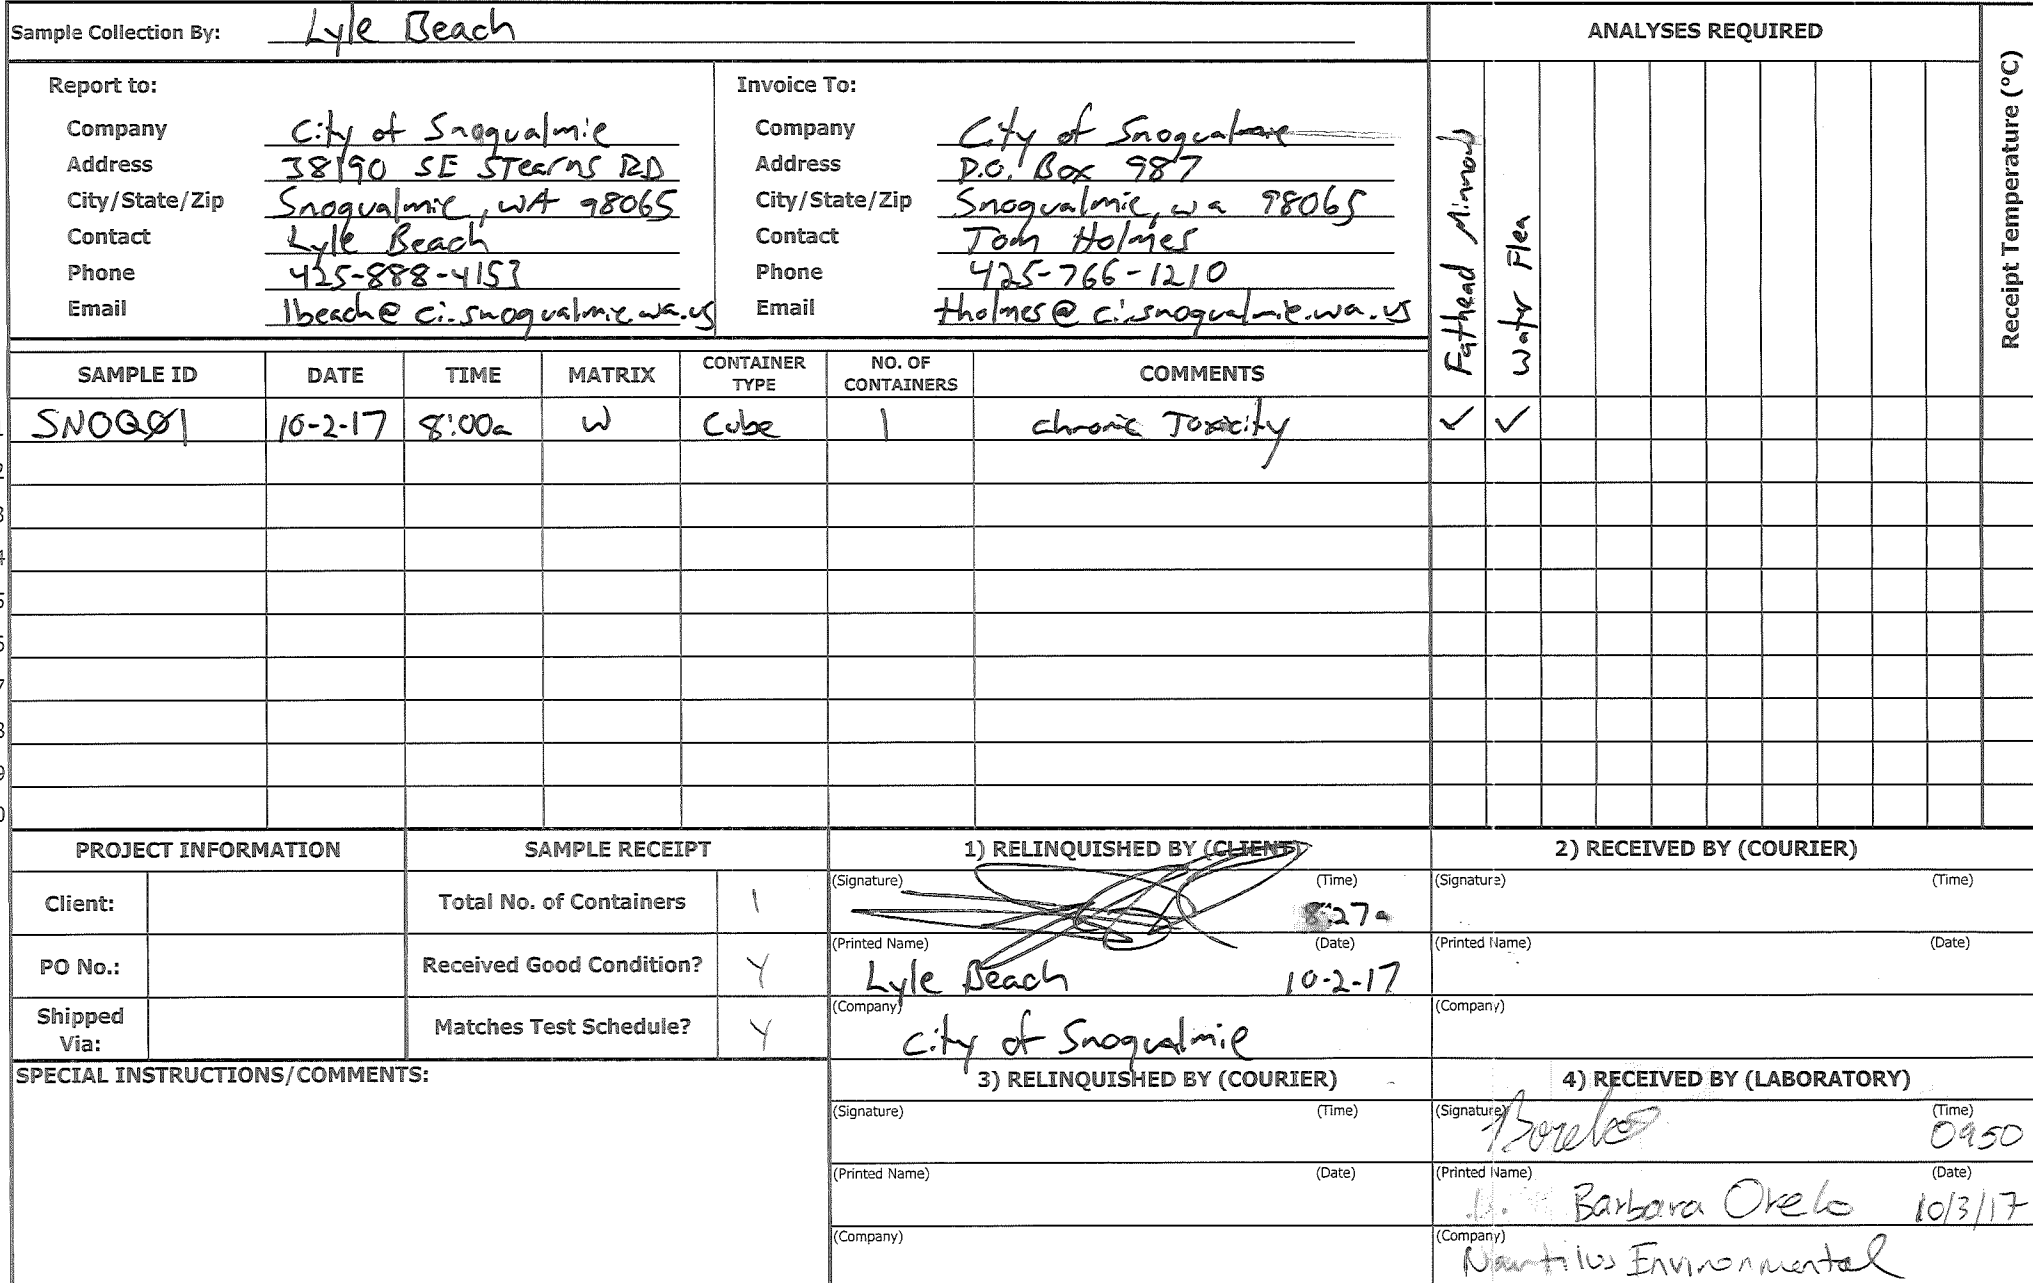 Sample Collection By: Lyle Beach
ANALYSES REQUIRED
Receipt Temperature (°C)
Report to:
Company City of Snoqualmie
Address 38190 SE Stearns RD
City/State/Zip Snoqualmie, WA 98065
Contact Lyle Beach
Phone 425-888-4153
Email lbeach@ci.snoqualmie.wa.us
Invoice To:
Company City of Snoqualmie
Address P.O. Box 987
City/State/Zip Snoqualmie, wa 98065
Contact Tom Holmes
Phone 425-766-1210
Email tholmes@ci.snoqualmie.wa.us
Fathead Minnow
Water Flea
SAMPLE ID DATE TIME MATRIX CONTAINER TYPE NO. OF CONTAINERS COMMENTS
SNOQØ1 10-2-17 8:00a W Cube 1 chronic Toxicity ✓ ✓
PROJECT INFORMATION
Client:
PO No.:
Shipped Via:
SAMPLE RECEIPT
Total No. of Containers 1
Received Good Condition? Y
Matches Test Schedule? Y
1) RELINQUISHED BY (CLIENT)
(Signature) (Time)
8:27a
(Printed Name) (Date)
Lyle Beach 10-2-17
(Company)
City of Snoqualmie
2) RECEIVED BY (COURIER)
(Signature) (Time)
(Printed Name) (Date)
(Company)
SPECIAL INSTRUCTIONS/COMMENTS:
3) RELINQUISHED BY (COURIER)
(Signature) (Time)
(Printed Name) (Date)
(Company)
4) RECEIVED BY (LABORATORY)
(Signature) (Time)
0950
(Printed Name) (Date)
Barbara Orelo 10/3/17
(Company)
Nautilus Environmental